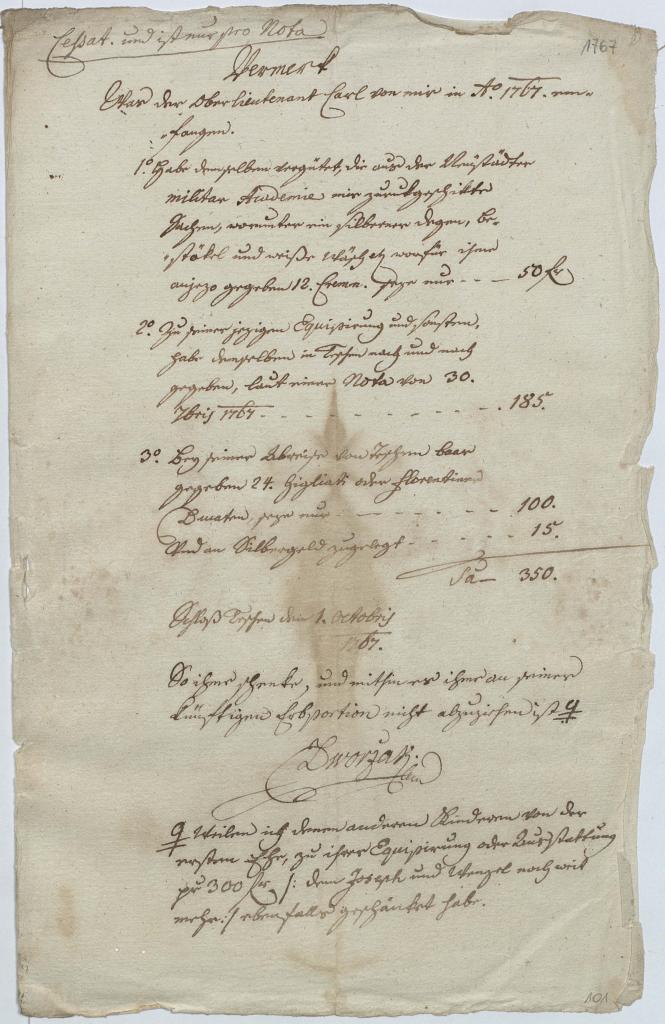 Cessat. und ist nur pro Nota
1767
Vermerk
Was der Oberlieutenant Carl von mir in Aō 1767. em-
-pfangen.
1º Habe demselben vergütet, die aus der Neüstädter
militar Academie mir zurukgeschikte
Sachen, worunter ein silberner degen, be-
-stökel und weiße Wäsch etz worfür ihme
anjezo gegeben 12. Cremn. seze nur - - - 50 fr
2º Zu seiner jezigen Equipirung und sonsten,
habe demselben in Teschen nach und nach
gegeben, laut einer Nota von 30.
7bris 1767 - - - - - - - - - - - - 185.
3º Bey seiner Abreise von Teschen baar
gegeben 24. Gigliati oder Florentiner
Ducaten, seze nur - - - - - - - 100.
Und an Silbergeld zugelegt - - - - - - 15.
Sa— 350.
Schloß Teschen den 1. Octobris
1767.
So ihme schenke, und mithin es ihme an seiner
künfftigen Erbsportion nicht abzuziehen ist
Dworzak
Weilen ich denen anderen Kinderen von der
ersten Ehe, zu ihrer Equipirung oder Ausstattung
pr 300 fr /: dem Joseph und Wenzel noch weit
mehr :/ ebenfalls geschänket habe.
101